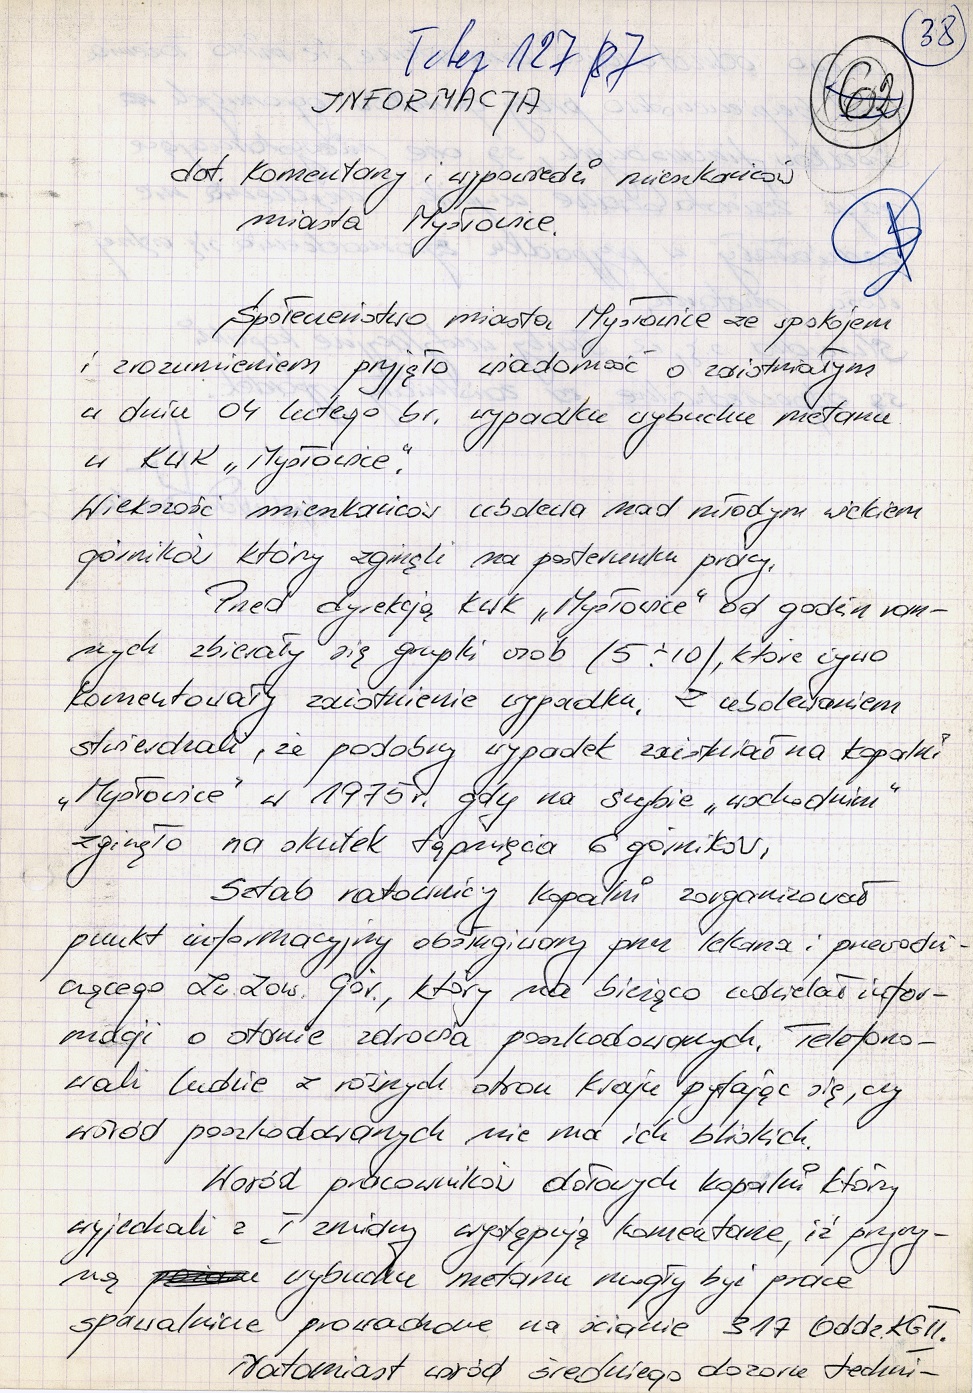 38
127/87
62
INFORMACJA
dot. komentarzy i wypowiedzi mieszkańców
miasta Mysłowice.
Społeczeństwo miasta Mysłowice ze spokojem
i zrozumieniem przyjęło wiadomość o zaistniałym
w dniu 04 lutego br. wypadku wybuchu metanu
w KWK „Mysłowice".
Większość mieszkańców ubolewa nad młodym wiekiem
górników którzy zginęli na posterunku pracy.
Przed dyrekcją KWK „Mysłowice" od godzin ran-
nych zbierały się grupki osób (5÷10), które żywo
komentowały zaistnienie wypadku. Z ubolewaniem
stwierdzali, że podobny wypadek zaistniał na kopalni
„Mysłowice" w 1975r. gdy na szybie „wschodnim"
zginęło na skutek tąpnięcia 6 górników.
Sztab ratowniczy kopalni zorganizował
punkt informacyjny obsługiwany przez lekarza i przewodni-
czącego Zw. Zaw. Gór., który na bieżąco udzielał infor-
macji o stanie zdrowia poszkodowanych. Telefono-
wali ludzie z różnych stron kraju pytając się, czy
wśród poszkodowanych nie ma ich bliskich.
Wśród pracowników dołowych kopalni którzy
wyjechali z I zmiany występują komentarze, iż przyczy-
ną wybuchu metanu mogły być prace
spawalnicze prowadzone na ścianie 317 Oddz. KG II.
Natomiast wśród średniego dozoru techni-